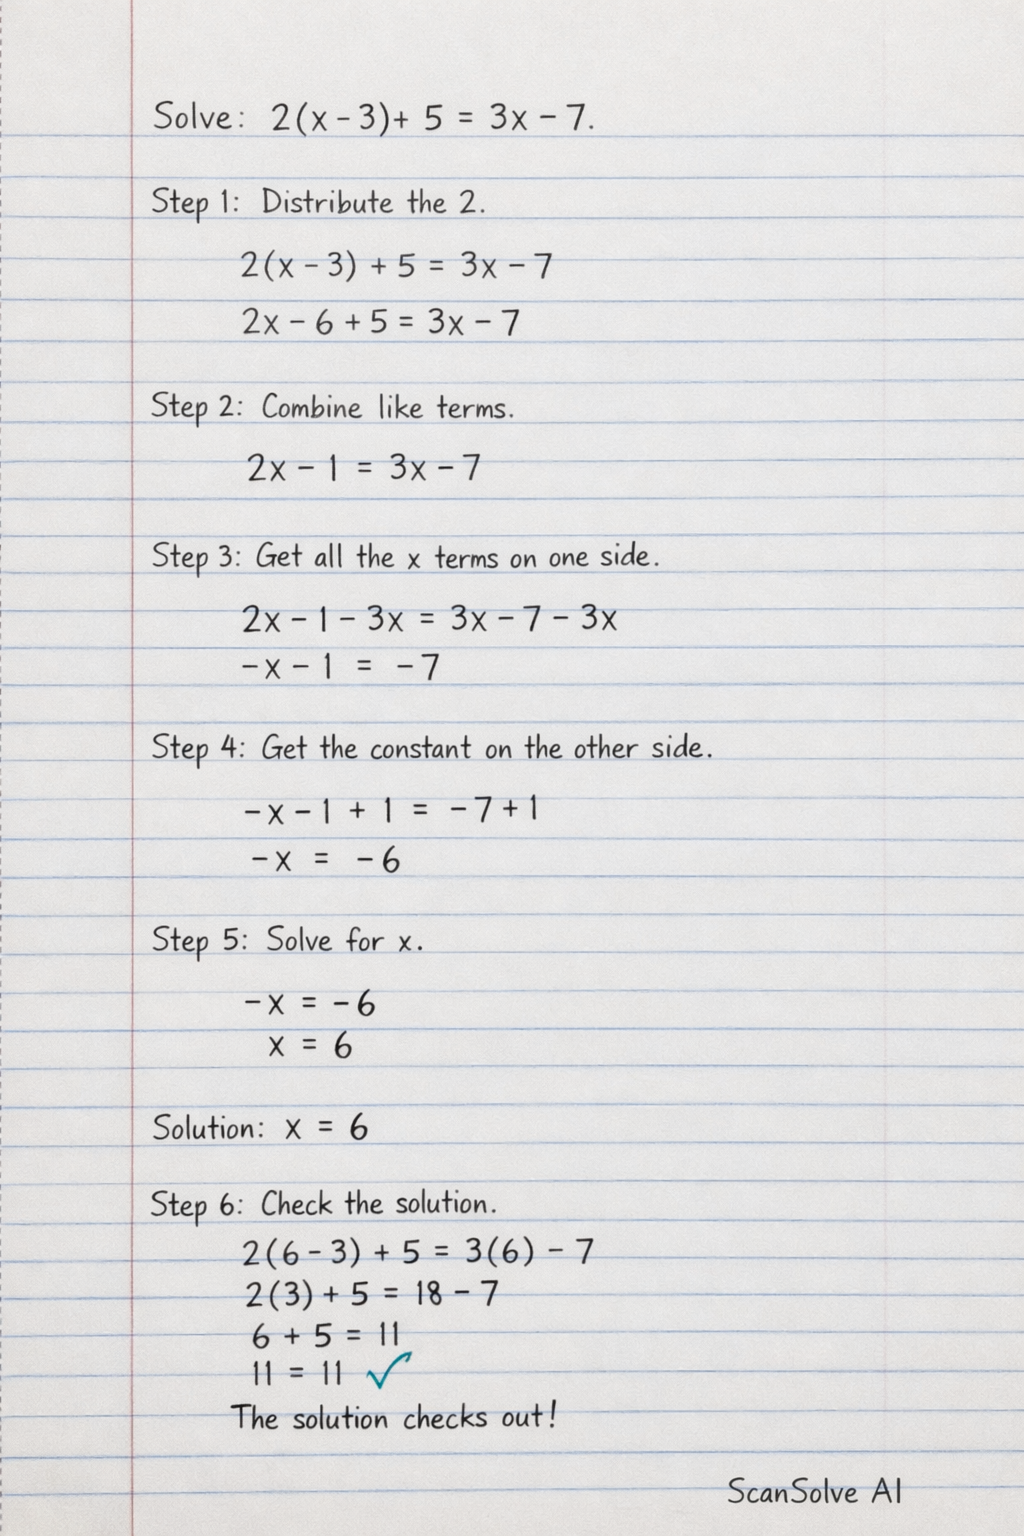 Solve: 2(x - 3)+ 5 = 3x - 7.
Step 1: Distribute the 2.
2(x - 3) + 5 = 3x - 7
2x - 6 + 5 = 3x - 7
Step 2: Combine like terms.
2x - 1 = 3x - 7
Step 3: Get all the x terms on one side.
2x - 1 - 3x = 3x - 7 - 3x
-x - 1 = -7
Step 4: Get the constant on the other side.
-x - 1 + 1 = -7 + 1
-x = -6
Step 5: Solve for x.
-x = -6
x = 6
Solution: x = 6
Step 6: Check the solution.
2(6 - 3) + 5 = 3(6) - 7
2(3) + 5 = 18 - 7
6 + 5 = 11
11 = 11 ✓
The solution checks out!
ScanSolve AI